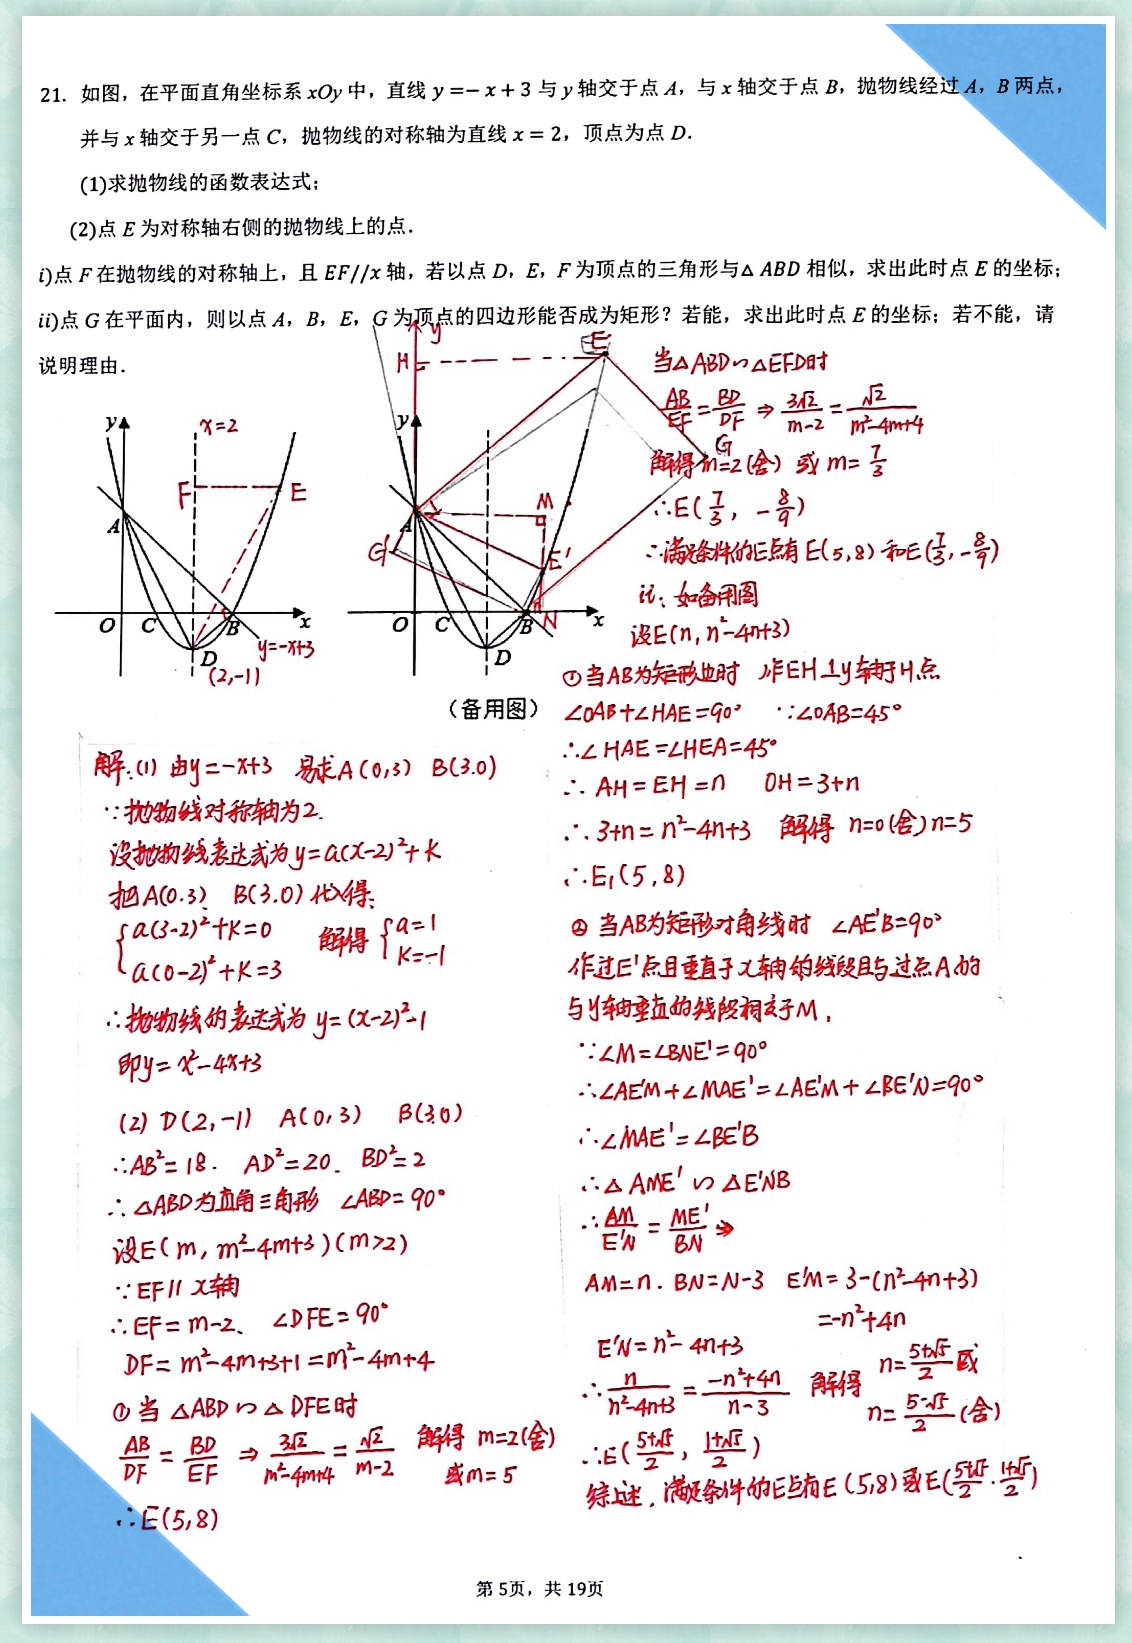 21. 如图，在平面直角坐标系 xOy 中，直线 y =− x + 3 与 y 轴交于点 A，与 x 轴交于点 B，抛物线经过 A，B 两点，
并与 x 轴交于另一点 C，抛物线的对称轴为直线 x = 2，顶点为点 D．
(1)求抛物线的函数表达式；
(2)点 E 为对称轴右侧的抛物线上的点．
i)点 F 在抛物线的对称轴上，且 EF//x 轴，若以点 D，E，F 为顶点的三角形与△ ABD 相似，求出此时点 E 的坐标；
ii)点 G 在平面内，则以点 A，B，E，G 为顶点的四边形能否成为矩形？若能，求出此时点 E 的坐标；若不能，请
说明理由．
y x=2
F E
A
O C B x
y=-x+3
D
(2,-1)
y
H E
y
G
M
A
G' E'
O C B N x
D
（备用图）
解:(1) 由y=-x+3 易求A(0,3) B(3.0)
∵抛物线对称轴为2.
设抛物线表达式为y=a(x-2)²+K
把A(0.3) B(3.0)代入得:
{a(3-2)²+K=0
a(0-2)²+K=3
解得 {a=1
K=-1
∴抛物线的表达式为 y=(x-2)²-1
即y=x²-4x+3
(2) D(2,-1) A(0,3) B(3,0)
∴AB²=18. AD²=20. BD²=2
∴△ABD为直角三角形 ∠ABD=90°
设E(m, m²-4m+3)(m>2)
∵EF∥x轴
∴EF=m-2、∠DFE=90°
DF=m²-4m+3+1=m²-4m+4
①当△ABD∽△DFE时
AB/DF=BD/EF ⇒ 3√2/m²-4m+4=√2/m-2 解得 m=2(舍)
或m=5
∴E(5,8)
当△ABD∽△EFD时
AB/EF=BD/DF ⇒ 3√2/m-2=√2/m²-4m+4
解得m=2(舍) 或 m=7/3
∴E(7/3, -8/9)
∴满足条件的E点有E(5,8)和E(7/3,-8/9)
ii、如备用图
设E(n,n²-4n+3)
①当AB为矩形边时 作EH⊥y轴于H点
∠OAB+∠HAE=90° ∵∠OAB=45°
∴∠HAE=∠HEA=45°
∴AH=EH=n OH=3+n
∴3+n=n²-4n+3 解得 n=0(舍)n=5
∴E₁(5,8)
②当AB为矩形对角线时 ∠AE'B=90°
作过E'点且垂直于x轴的线段且与过点A的
与y轴垂直的线段相交于M,
∵∠M=∠BNE'=90°
∴∠AE'M+∠MAE'=∠AE'M+∠BE'N=90°
∴∠MAE'=∠BE'B
∴△AME'∽△E'NB
∴AM/E'N=ME'/BN ⇒
AM=n. BN=N-3 E'M=3-(n²-4n+3)
=-n²+4n
E'N=n²-4n+3
∴n/n²-4n+3=-n²+4n/n-3 解得 n=5+√5/2 或
n=5-√5/2(舍)
∴E(5+√5/2, 1+√5/2)
综上述, 满足条件的E点有E(5,8)或E(5+√5/2.1+√5/2)
第 5页，共 19页